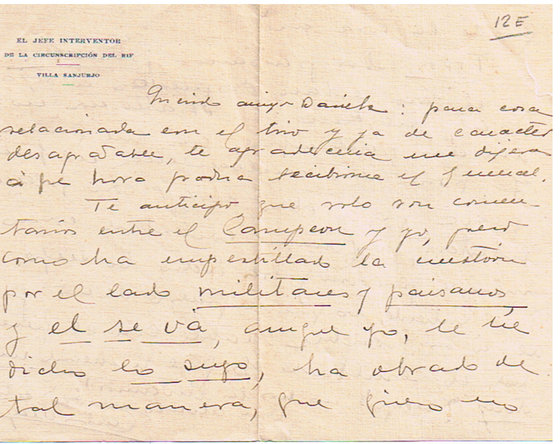 12E
EL JEFE INTERVENTOR
DE LA CIRCUNSCRIPCIÓN DEL RIF
VILLA SANJURJO
Querido amigo Daniel: para cosa
relacionada con el tiro y ya de caracter
desagradable, te agradeceria me dijeras
a que hora podria recibirme el General.
Te anticipo que solo son comen
tarios entre el Campeon y yo, pero
como ha empestillado la cuestión
por el lado militares y paisanos,
y el se va, aunque yo, le he
dicho lo suyo, ha obrado de
tal manera, que quiero no